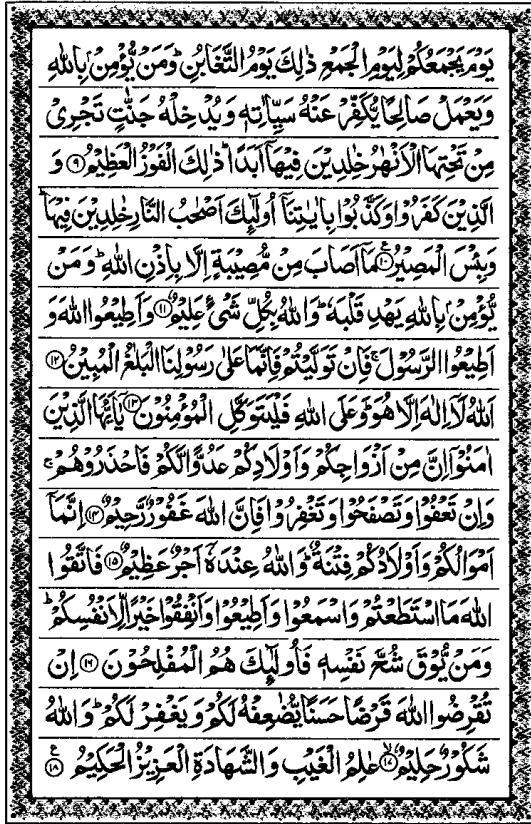 يَوْمَ يَجْمَعُكُمْ لِيَوْمِ الْجَمْعِ ذٰلِكَ يَوْمُ التَّغَابُنِ ؕ وَمَنْ يُّؤْمِنْۢ بِاللّٰهِ
وَيَعْمَلْ صَالِحًا يُّكَفِّرْ عَنْهُ سَيِّاٰتِهٖ وَيُدْخِلْهُ جَنّٰتٍ تَجْرِيْ
مِنْ تَحْتِهَا الْاَنْهٰرُ خٰلِدِيْنَ فِيْهَاۤ اَبَدًا ؕ ذٰلِكَ الْفَوْزُ الْعَظِيْمُ ۹ وَ
الَّذِيْنَ كَفَرُوْا وَكَذَّبُوْا بِاٰيٰتِنَاۤ اُولٰٓئِكَ اَصْحٰبُ النَّارِ خٰلِدِيْنَ فِيْهَا ؕ
وَبِئْسَ الْمَصِيْرُ ۱۰ ع مَاۤ اَصَابَ مِنْ مُّصِيْبَةٍ اِلَّا بِاِذْنِ اللّٰهِ ؕ وَمَنْ
يُّؤْمِنْۢ بِاللّٰهِ يَهْدِ قَلْبَهٗ ؕ وَاللّٰهُ بِكُلِّ شَيْءٍ عَلِيْمٌ ۱۱ وَاَطِيْعُوا اللّٰهَ وَ
اَطِيْعُوا الرَّسُوْلَ ۚ فَاِنْ تَوَلَّيْتُمْ فَاِنَّمَا عَلٰى رَسُوْلِنَا الْبَلٰغُ الْمُبِيْنُ ۱۲
اَللّٰهُ لَاۤ اِلٰهَ اِلَّا هُوَ ؕ وَعَلَى اللّٰهِ فَلْيَتَوَكَّلِ الْمُؤْمِنُوْنَ ۱۳ يٰۤاَيُّهَا الَّذِيْنَ
اٰمَنُوْۤا اِنَّ مِنْ اَزْوَاجِكُمْ وَاَوْلَادِكُمْ عَدُوًّا لَّكُمْ فَاحْذَرُوْهُمْ ۚ
وَاِنْ تَعْفُوْا وَتَصْفَحُوْا وَتَغْفِرُوْا فَاِنَّ اللّٰهَ غَفُوْرٌ رَّحِيْمٌ ۱۴ اِنَّمَاۤ
اَمْوَالُكُمْ وَاَوْلَادُكُمْ فِتْنَةٌ ؕ وَاللّٰهُ عِنْدَهٗۤ اَجْرٌ عَظِيْمٌ ۱۵ فَاتَّقُوا
اللّٰهَ مَا اسْتَطَعْتُمْ وَاسْمَعُوْا وَاَطِيْعُوْا وَاَنْفِقُوْا خَيْرًا لِّاَنْفُسِكُمْ ؕ
وَمَنْ يُّوْقَ شُحَّ نَفْسِهٖ فَاُولٰٓئِكَ هُمُ الْمُفْلِحُوْنَ ۱۶ اِنْ
تُقْرِضُوا اللّٰهَ قَرْضًا حَسَنًا يُّضٰعِفْهُ لَكُمْ وَيَغْفِرْ لَكُمْ ؕ وَاللّٰهُ
شَكُوْرٌ حَلِيْمٌ ۙ ۱۷ عٰلِمُ الْغَيْبِ وَالشَّهَادَةِ الْعَزِيْزُ الْحَكِيْمُ ۱۸ ع